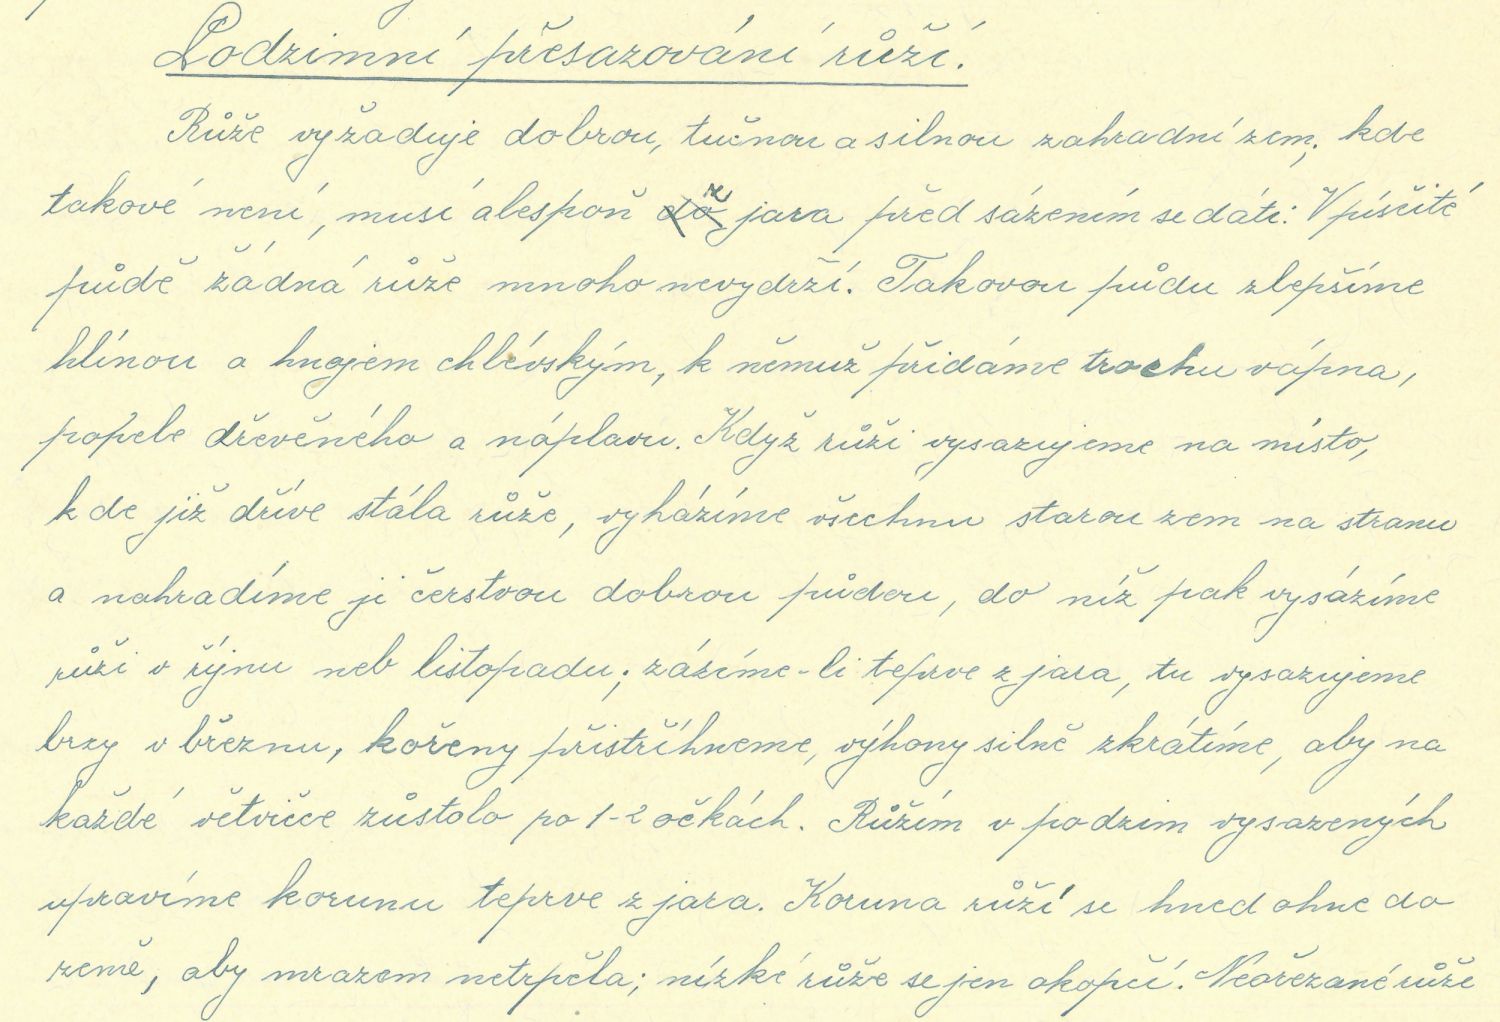 Podzimní přesazování růží.
Růže vyžaduje dobrou, tučnou a silnou zahradní zem; kde
takové není, musí alespoň z jara před sázením se dáti. V písčité
půdě žádná růže mnoho nevydrží. Takovou půdu zlepšíme
hlínou a hnojem chlévským, k němuž přidáme trochu vápna,
popele dřevěného a náplavu. Když růži vysazujeme na místo,
kde již dříve stála růže, vyházíme všechnu starou zem na stranu
a nahradíme ji čerstvou dobrou půdou, do níž pak vysázíme
růži v říjnu neb listopadu; zázíme-li teprve z jara, tu vysazujeme
brzy v březnu, kořeny přistřihneme, výhony silně zkrátíme, aby na
každé větvičce zůstalo po 1-2 očkách. Růžím v podzim vysazených
upravíme korunu teprve z jara. Koruna růží se hned ohne do
země, aby mrazem netrpěla; nízké růže se jen okopčí. Neořezané růže